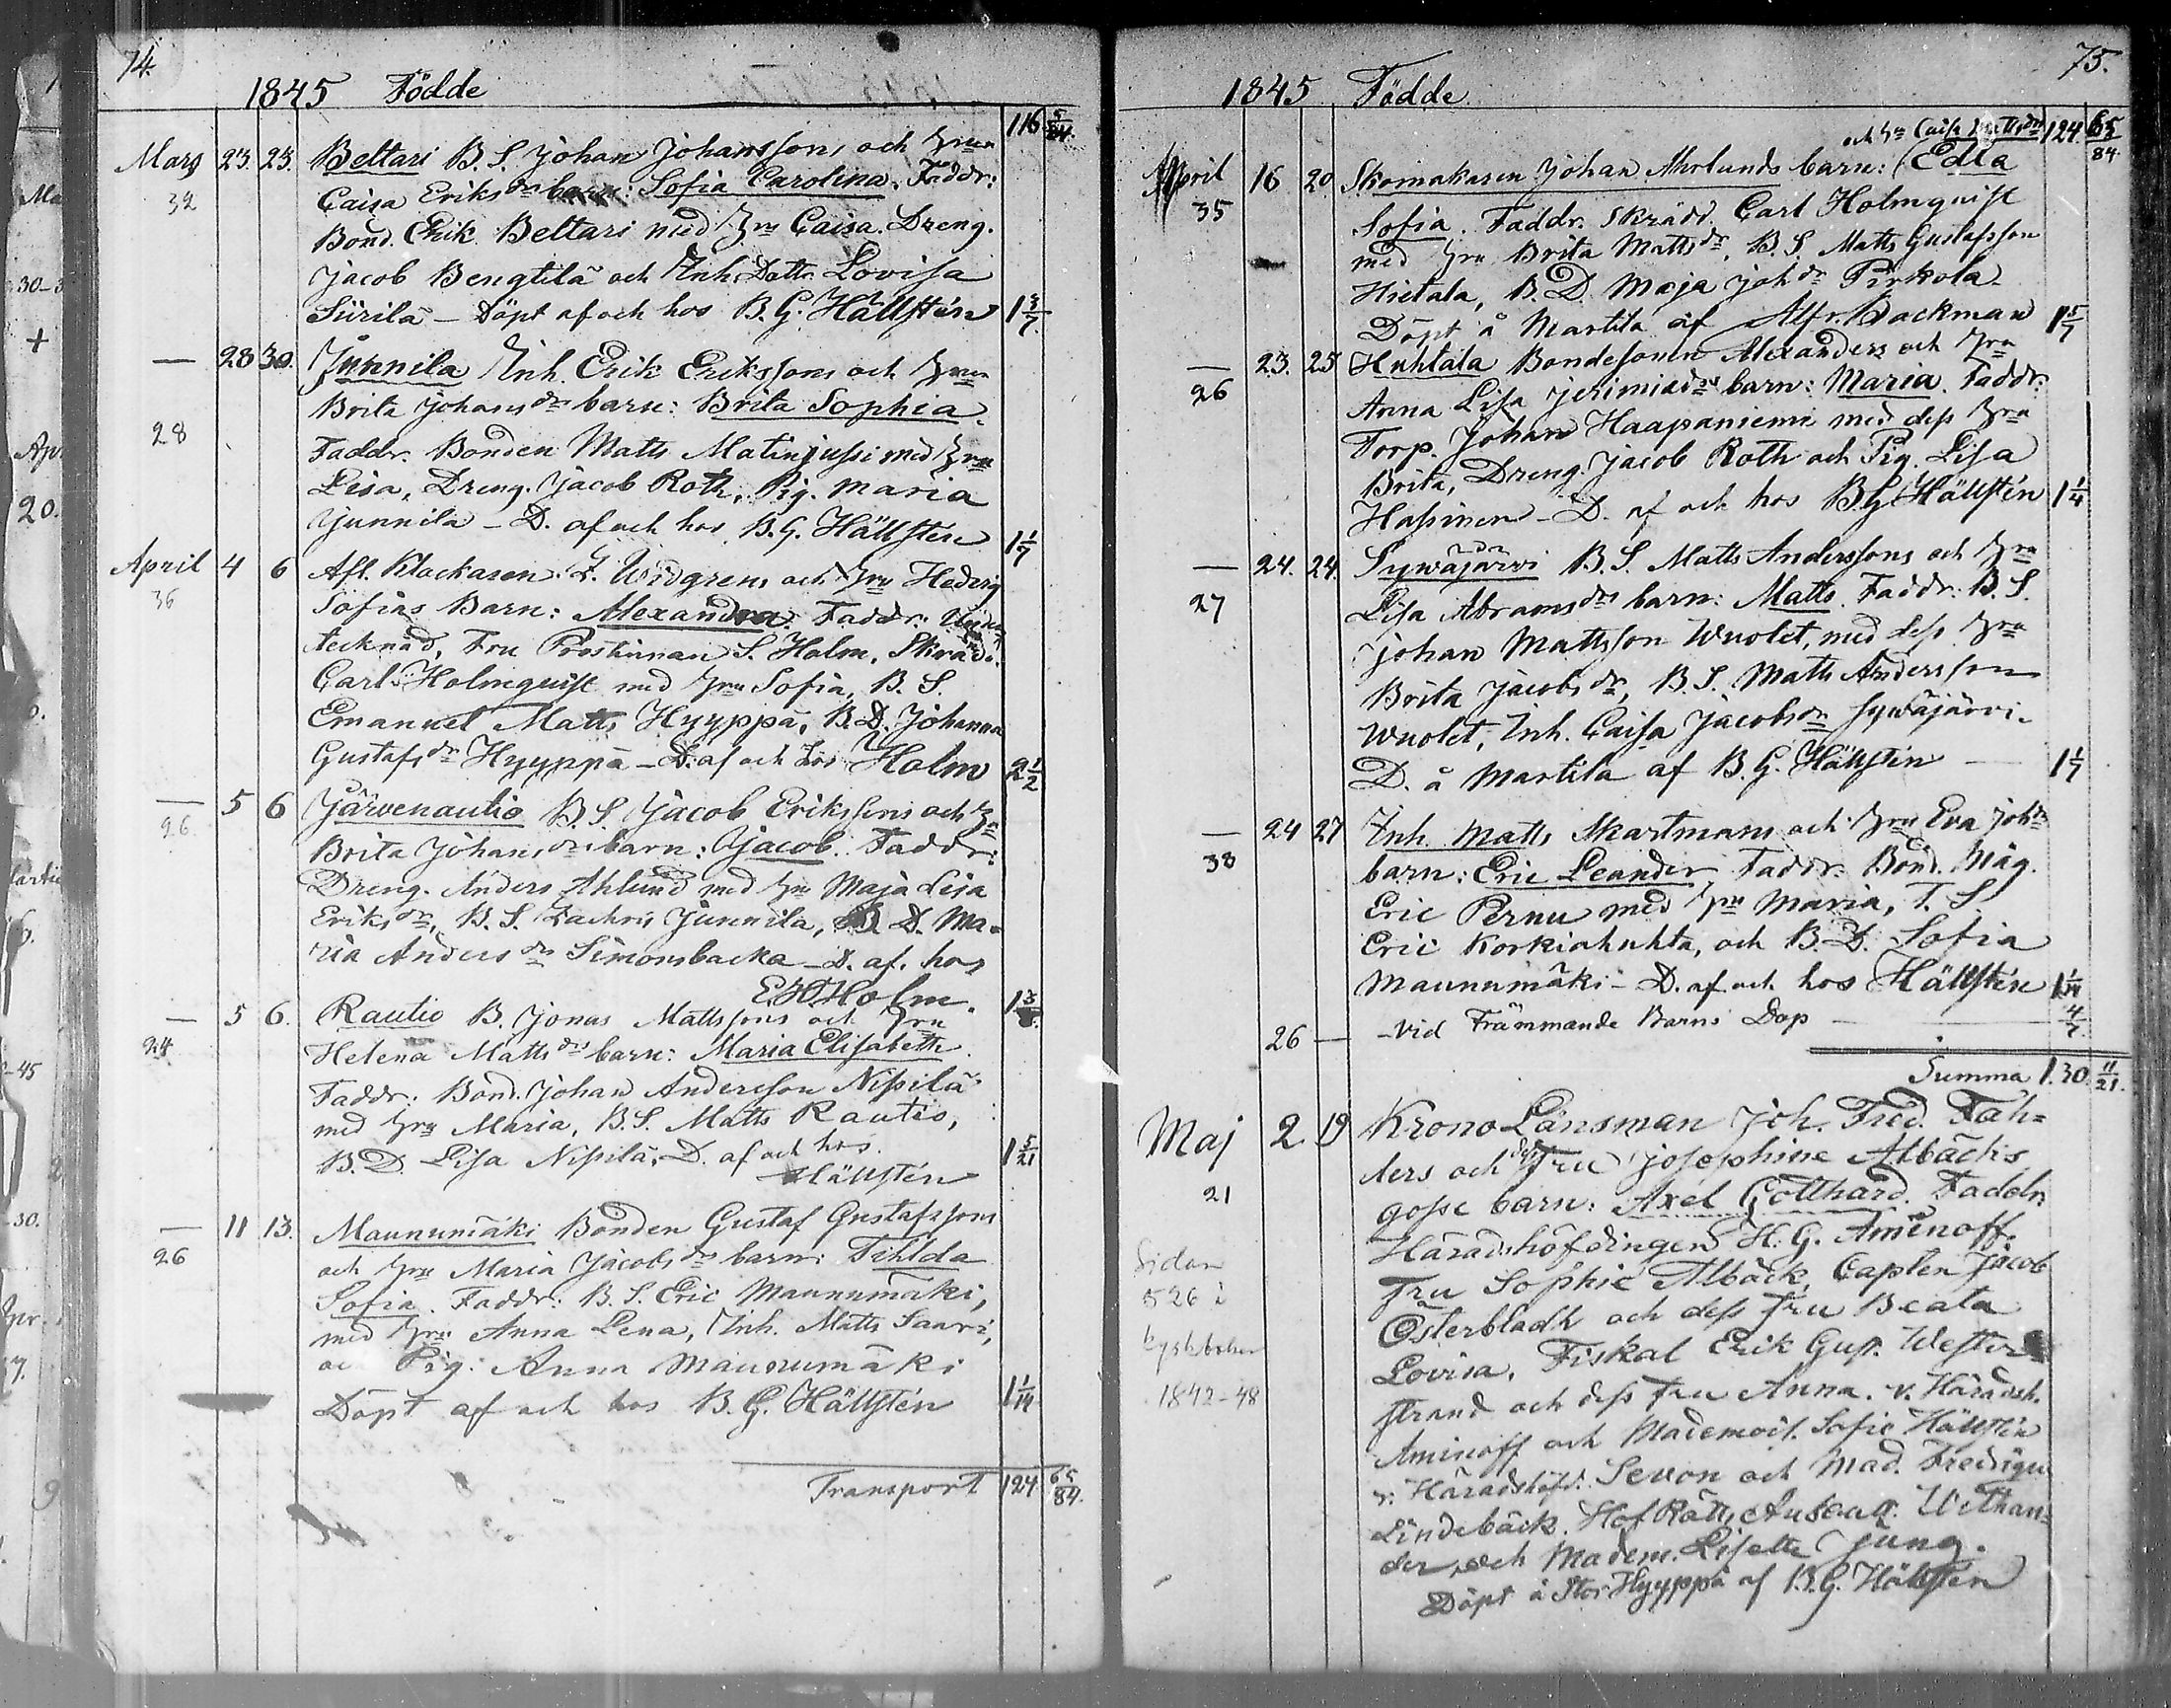 74.
1845 Födde
116 5/84.
Mars 23. 23. Beltari B. S. Johan Johanssons och hrun
32 Caisa Eriksdrs barn: Sofia Carolina. Faddr:
Bond. Erik Beltari med hru Caisa. Dreng.
Jacob Bengtilä och Inh. Dottr. Lovisa
Siirilä – Döpt af och hos B. G. Hällstén 1 3/7.
— 28 30. Junnila Inh. Erik Erikssons och hrun
Brita Johansdrs barn: Brita Sophia.
28 Faddr. Bonden Matts Matinjussi med hru
Lisa, Dreng. Jacob Roth, Pig. Maria
Junnila – D. af och hos B. G. Hällstén 1 1/7
April 4 6 Afl. Klockaren Z. Widgrens och hru Hedvig
36 Sofias Barn: Alexandra Faddr: Under
tecknad, Fru Prostinnan S. Holm, Skrädd.
Carl Holmquist med hru Sofia, B. S.
Emanuel Matts Hyyppä, B. D. Johanna
Gustafsdr Hyyppä – D. af och hos Holm 2 1/2
— 5 6 Järvenautio B. S. Jacob Erikssons och hru
26. Brita Johansdrs barn: Jacob. Faddr:
Dreng. Anders Ahlund med hru Maja Lisa
Eriksdr, B. S. Zachris Junnila, B. D. Ma-
ria Andersdr Simonsbacka – D. af. hos
E H Holm. 1 3/
— 5 6. Rautio B. Jonas Mattssons och hru
24 Helena Mattsdrs barn: Maria Elisabeth.
Faddr: Bond. Johan Andersson Nissilä
med hru Maria, B. S. Matts Rautio,
B. D. Lisa Nissilä, D. af och hos 1 5/21
Hällstén
— 11 13. Maunumäki Bonden Gustaf Gustafssons
26 och hru Maria Jacobsdrs barn: Tihlda
Sofia. Faddr: B. S. Eric Maunumäki,
med hru Anna Lena, Inh. Matts Saari,
oc Pig. Anna Maunumäki
Döpt af och hos B. G. Hällstén 1 1/14
Transport 124 65/84.
75.
1845 Födde
och hru Caisa Mattsdrs 124. 65/84
April 16 20. Skomakaren Johan Åkerlunds barn: Edla
35 Sofia. Faddr. Skrädd. Carl Holmquist
med hru Brita Mattsdr, B. S. Matts Gustafsson
Hietala, B. D. Maja Johdr Pirkola
Döpt å Martila af Alfr. Backman 1 5/7
— 23. 25 Huhtala Bondesonen Alexanders och hru
26 Anna Lisa Jerimiædrs barn: Maria. Faddr:
Torp. Johan Haapaniemi med dess hru
Brita, Dreng. Jacob Roth och Pig. Lisa
Hassinen – D. af och hos B. G Hällstén 1 1/4
— 24. 24. Sywäjärvi B. S. Matts Anderssons och hru
27 Lisa Abramsdrs barn: Matts. Faddr: B. S.
Johan Mattsson Wuolet, med dess hru
Brita Jacobsdr, B. S. Matts Andersson
Wuolet, Inh. Caisa Jacobsdr Sywäjärvi.
D. å Martila af B. G. Hällstén — 1 1/7
— 24 27 Inh. Matts Skartmans och hru Eva Johdrs
38 barn: Eric Leander Faddr. Bond. Måg.
Eric Pernu med hru Maria, T. S.
Eric Korkiahuhta, och B. D. Sofia
Maunumäki – D. af och hos Hällstén 1 1/14
26 — – Vid Främmande Barns Dop — 4/7.
Summa 1.30. 11/21.
Maj 2. 19 Krono Länsman Joh. Fred. Fah-
lers och dess Fru Josephine Albäcks
21 gosse barn: Axel Gotthard. Faddr:
Häradshöfdingen H. G. Aminoff,
Sidan Fru Sophie Albäck, Caplen Jacob
526 i Österbladh och dess Fru Beata
kyrkboken Lovisa, Fiskal Erik Gust. Wester
1842–48 strand och dess Fru Anna. v. Häradsh.
Aminoff och Mademois. Sofie Hällstén
v. Häradshöfd. Sevon och Mad. Fredrique
Lindebäck. Hof Rätts Auscult. Withan-
der och Madem. Lisette Jung.
Döpt å Stor Hyyppä af B. G. Hällstén